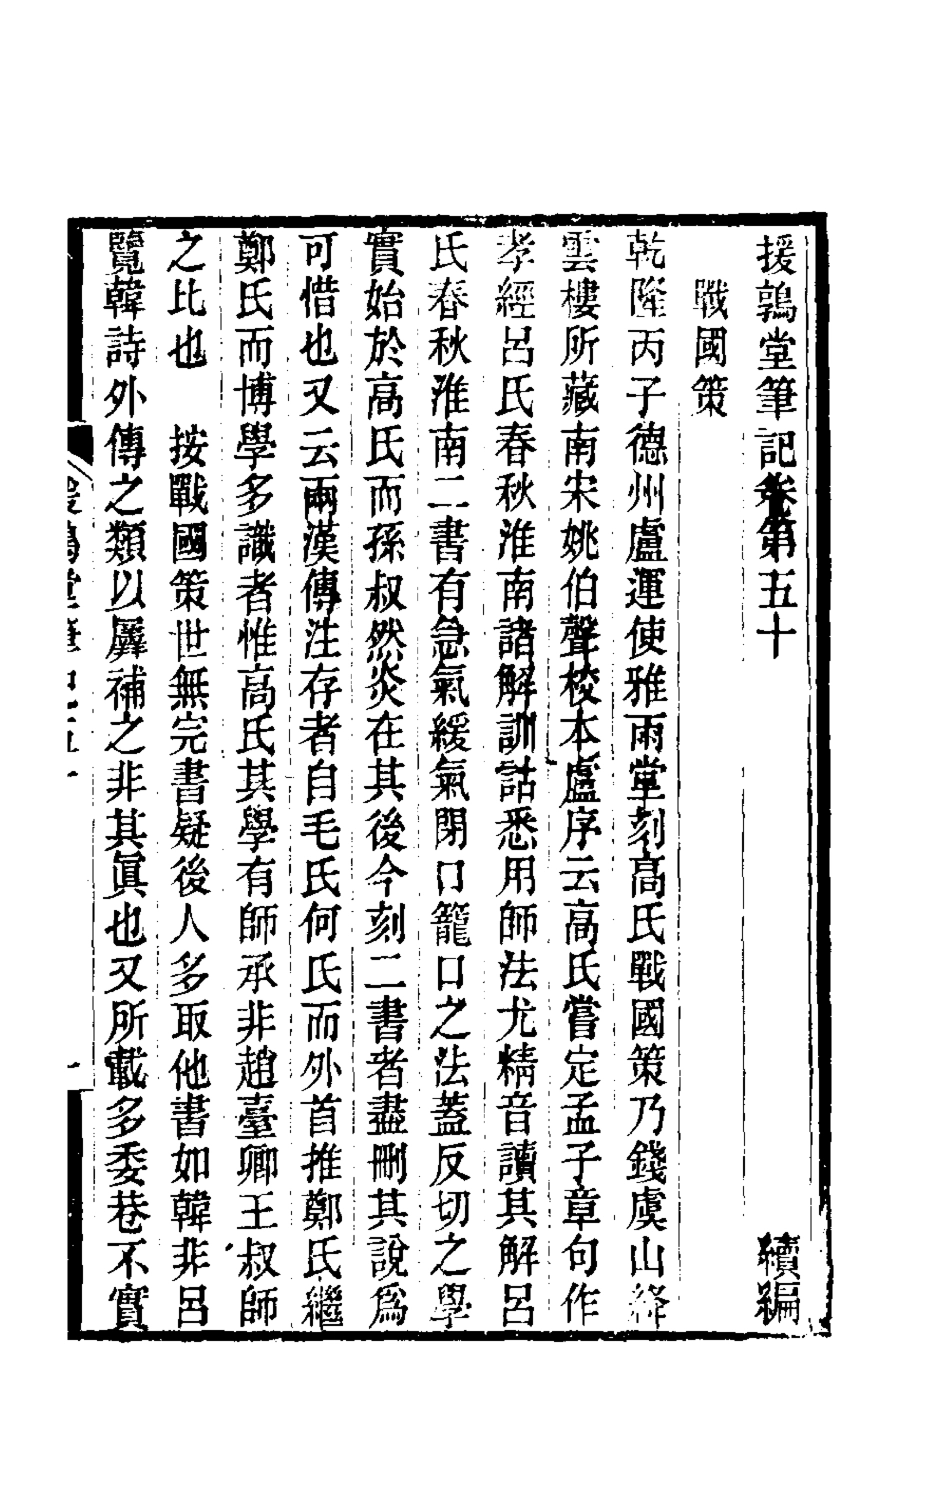 援鶉堂筆記卷第五十　續編
戰國策
乾隆丙子德州盧運使雅雨堂刻高氏戰國策乃錢虞山絳
雲樓所藏南宋姚伯聲校本盧序云高氏嘗定孟子章句作
孝經呂氏春秋淮南諸解訓詁悉用師法尤精音讀其解呂
氏春秋淮南二書有急氣緩氣閉口籠口之法蓋反切之學
實始於高氏而孫叔然炎在其後今刻二書者盡刪其說爲
可惜也又云兩漢傳注存者自毛氏何氏而外首推鄭氏繼
鄭氏而博學多識者惟高氏其學有師承非趙臺卿王叔師
之比也　按戰國策世無完書疑後人多取他書如韓非呂
覽韓詩外傳之類以羼補之非其眞也又所載多委巷不實
援鶉堂筆記五十　一